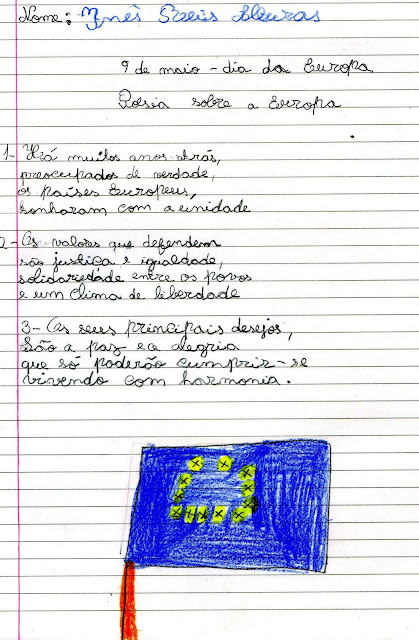 Nome: Inês Reis
9 de maio - dia da Europa
Poesia sobre a Europa
1- Há muitos anos atrás,
preocupados de verdade,
os países Europeus,
sonharam com a unidade
2- Os valores que defendem
são justiça e igualdade,
solidariedade entre os povos
e um clima de liberdade
3- Os seus principais desejos,
São a paz e a alegria
que só poderão cumprir-se
vivendo com harmonia.